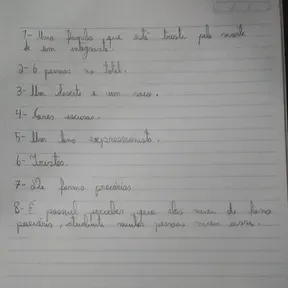 1- Uma família que está triste pela morte
de um integrante.
2- 6 pessoas no total.
3- Um deserto e um vaso.
4- Cores escuras.
5- Um tema expressionista.
6- Tristes.
7- De forma precária.
8- É possível perceber que eles vivem de forma
precária, atualmente muitas pessoas vivem assim.